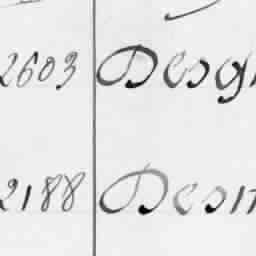 2603 Desg
2188 Desm